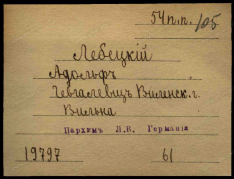 54 п.п. 105
Лебецкій
Адольфъ
Виленск. г.
Вильна
Пархимъ Л.В. Германія
19797 61